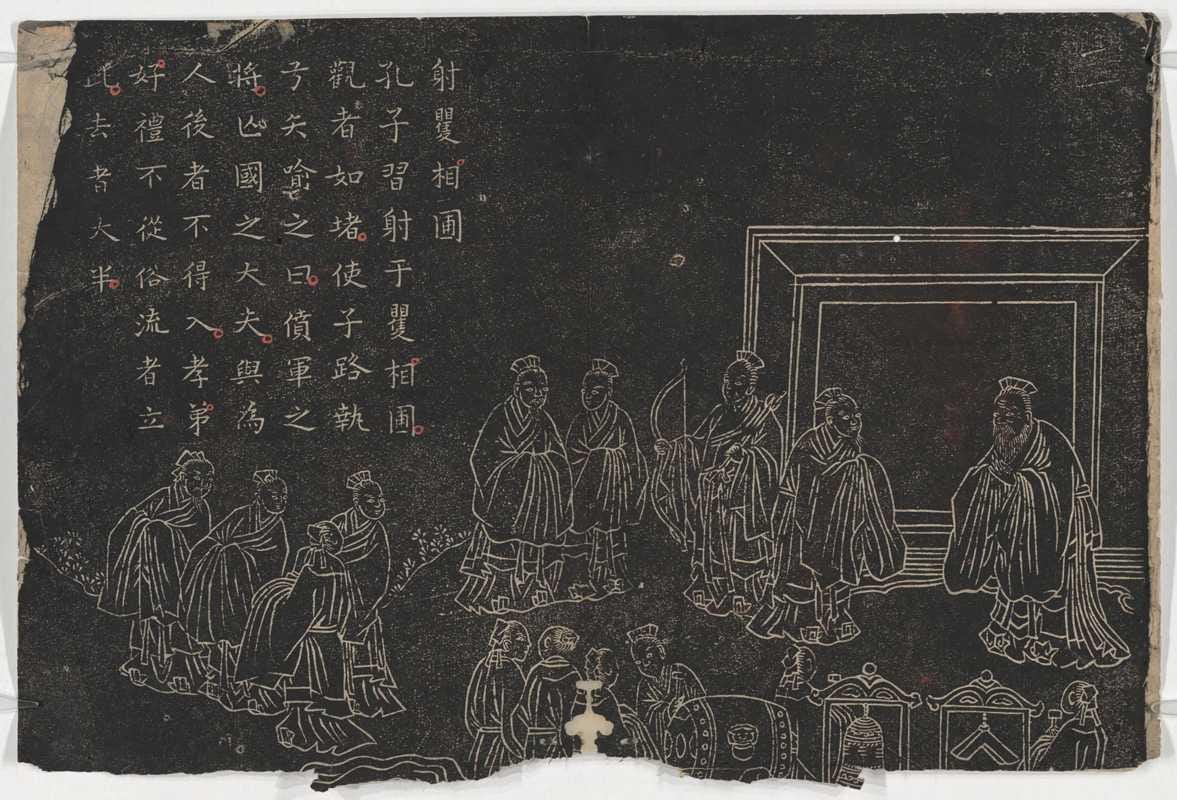 射矍相圃
孔子習射于矍相圃
觀者如堵使子路執
弓矢喻之曰僨軍之
將亡國之大夫與為
人後者不得入孝弟
好禮不從俗流者立
此去者大半